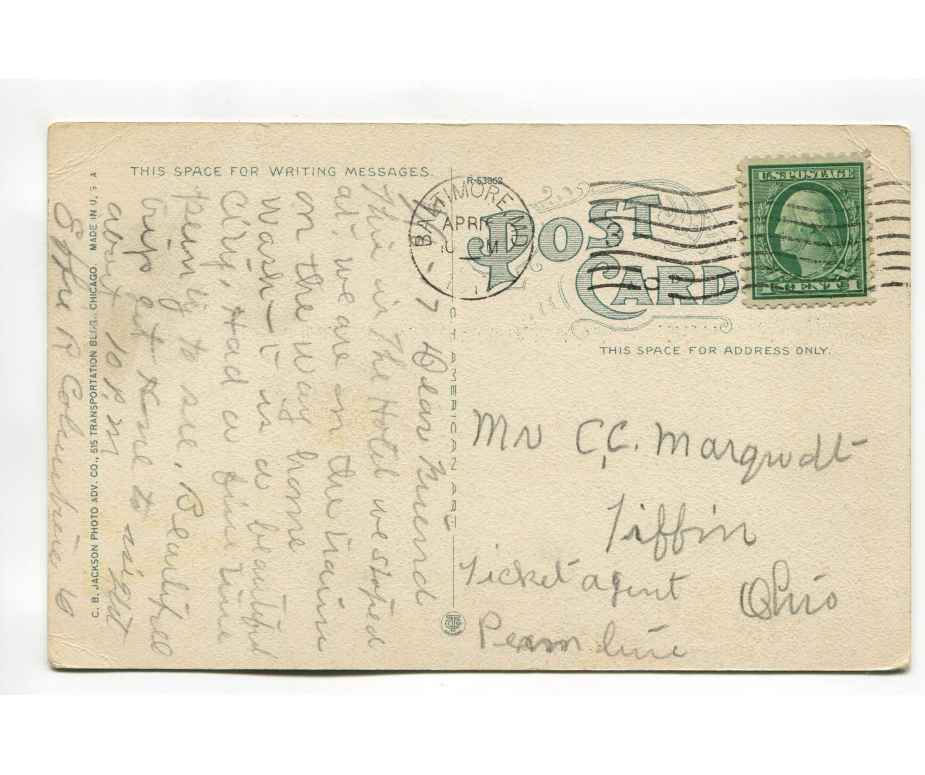 THIS SPACE FOR WRITING MESSAGES.
R-53962
BALTIMORE MD
APR
POST
CARD
U.S. POSTAGE
CENT 1
THIS SPACE FOR ADDRESS ONLY.
Dear Friend
This is The Hotel we stoped
at. we are on the train
on the way home
Wash is a beautiful
City, Had a fine time
penny to see. Beautiful
trip get Home to night
about 10 P.M
Mr C.C. Marqudt
Tiffin
Ohio
Ticket agent
Penn line
C. B. JACKSON PHOTO ADV. CO., 615 TRANSPORTATION BLDG., CHICAGO. MADE IN U.S.A
AMERICAN ART